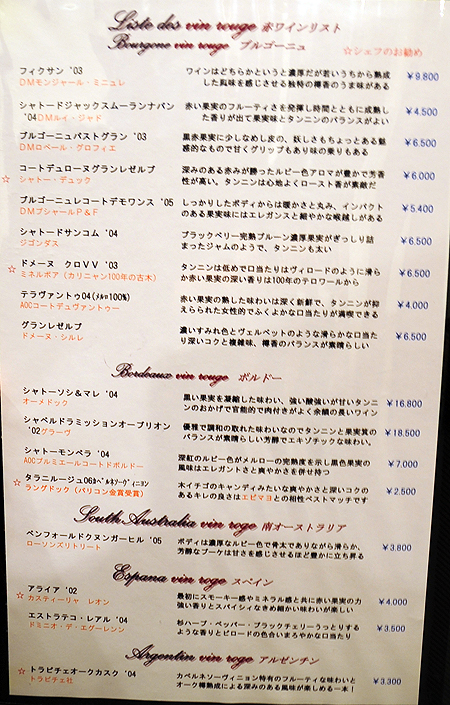 Liste des vin rouge 赤ワインリスト
Bourgone vin rouge ブルゴーニュ ☆シェフのお勧め
フィクサン '03 ワインはどちらかというと濃厚だが若いうちから熟成 ¥9.800
DMモンジャール・ミニュレ した風味を感じさせる独特の樽香のうま味がある
シャトードジャックスムーランナバン 赤い果実のフルーティさを発揮し時間とともに成熟し ¥4.500
'04DMルイ・ジャド た香りが出て果実味とタンニンのバランスがよい
ブルゴーニュパストグラン '03 黒赤果実に少しなめし皮の、妖しさもちょっとある魅 ¥6.500
DMロベール・グロフィエ 惑的なもので甘くグリップもあり味の乗りもある
コートデュローヌグランレゼルブ 深みのある赤みが勝ったルビー色アロマが豊かで芳香 ¥6.000
☆ シャトー・デュック 性が高い。タンニンは心地よくロースト香が素敵だ
ブルゴーニュレコートデモワンス '05 しっかりしたボディからは暖かさと丸み、インパクト ¥5.400
DMブシャールP&F のある果実味にはエレガンスと細やかな喉越しがある
シャトードサンコム '04 ブラックベリー完熟プルーン濃厚果実がぎっしり詰 ¥6.500
ジゴンダス まったジャムのようで、タンニンも太い
☆ ドメーヌ クロVV '03 タンニンは低めで口当たりはヴィロードのように滑ら ¥6.500
ミネルボア（カリニャン100年の古木） か赤い果実の深い香りは100年のテロワールから
テラヴァントゥ04(メルロ100%) 赤い果実の熟した味わいは深く新鮮で、タンニンが抑 ¥4.000
AOCコートデュヴァントゥー えられた女性的でふくよかな口当たりが満喫できる
グランレゼルブ 濃いすみれ色とヴェルベットのような滑らかな口当た ¥6.500
ドメーヌ・シルレ り深いコクと複雑味、樽香のバランスが素晴らしい
Bordeaux vin rouge ボルドー
シャトーソシ&マレ '04 黒い果実を凝縮した味わい、強い酸強いが甘いタンニ ¥16.800
オーメドック ンのおかげで官能的で肉付きがよく余韻の長いワイン
シャペルドラミッションオーブリオン 優雅で調和の取れた味わいなのでタンニンと果実質の ¥18.500
'02グラーヴ バランスが素晴らしい芳醇でエキゾチックな味わい。
シャトーモンペラ '04 深紅のルビー色がメルローの完熟度を示し黒色果実の ¥7.000
AOCプルミエールコートドボルドー 風味はエレガントさと爽やかさを併せ持つ
☆ タラニルージュ06カベルネソーヴィニヨン 木イチゴのキャンディみたいな爽やかさと深いコクの ¥2.500
ラングドック（パリコン金賞受賞） あるキレの良さはエビマヨとの相性ベストマッチです
South Australia vin roge 南オーストラリア
ペンフォールドクヌンガーヒル '05 ボディは濃厚なルビー色で骨太でありながら滑らか、 ¥3.800
ローソンズリトリート 芳醇なブーケは甘さを感じさせるほど豊かに立ち昇る
Espana vin roge スペイン
☆ アライア '02 最初にスモーキー感やミネラル感と共に赤い果実の力 ¥4.000
カスティーリャ レオン 強い香りとスパイシィなきめ細かい味わいが楽しい
エストラテコ・レアル '04 杉ハーブ・ペッパー・ブラックチェリーうっとりする ¥3.500
ドミニオ・デ・エグーレンン ような香りとビロードの色合いまろやかな口当たり
Argentin vin roge アルゼンチン
☆ トラピチェオークカスク '04 カベルネソーヴィニョン特有のフルーティな味わいと ¥3.300
トラピチェ社 オーク樽熟成による深みのある風味が楽しめる一本！